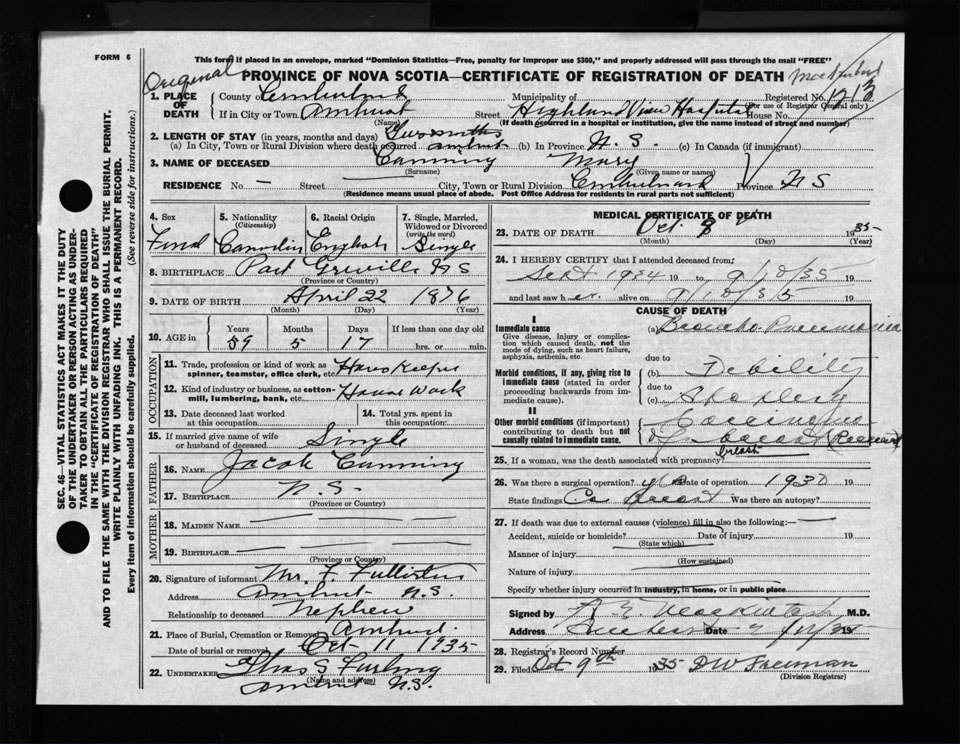 FORM 6
This form if placed in an envelope, marked "Dominion Statistics—Free, penalty for improper use $300," and properly addressed will pass through the mail "FREE"
Original
PROVINCE OF NOVA SCOTIA—CERTIFICATE OF REGISTRATION OF DEATH
1. PLACE OF DEATH
County of Cumberland Municipality of Registered No. 1213
(For use of Registrar General only)
If in City or Town of Amherst Street Highland View Hospital House No.
(Name) (If death occurred in a hospital or institution, give the name instead of street and number)
2. LENGTH OF STAY (in years, months and days) Two months
(a) In City, Town or Rural Division where death occurred Amherst (b) In Province N.S. (c) In Canada (if immigrant)
3. NAME OF DECEASED Canning Mary
(Surname) (Given name or names)
RESIDENCE No. — Street City, Town or Rural Division Cumberland Province NS
(Residence means usual place of abode. Post Office Address for residents in rural parts not sufficient)
4. Sex
5. Nationality
(Citizenship)
6. Racial Origin
7. Single, Married, Widowed or Divorced
(write the word)
Female Canadian English Single
8. BIRTHPLACE Port Greville NS
(Province or Country)
9. DATE OF BIRTH April 22 1876
(Month) (Day) (Year)
10. AGE in
Years Months Days If less than one day old
59 5 17 hrs. or min.
OCCUPATION
11. Trade, profession or kind of work as spinner, teamster, office clerk, etc. House Keeper
12. Kind of industry or business, as cotton-mill, lumbering, bank, etc. House Work
13. Date deceased last worked at this occupation
14. Total yrs. spent in this occupation
15. If married give name of wife or husband of deceased Single
FATHER
16. NAME Jacob Canning
17. BIRTHPLACE N.S.
(Province or Country)
MOTHER
18. MAIDEN NAME
19. BIRTHPLACE
(Province or Country)
20. Signature of informant Mr. F.
Address Amherst N.S.
Relationship to deceased Nephew
21. Place of Burial, Cremation or Removal Amherst
Date of burial or removal Oct 11 1935
22. UNDERTAKER
(Name and address)
Amherst N.S.
MEDICAL CERTIFICATE OF DEATH
23. DATE OF DEATH Oct. 9 1935
(Month) (Day) (Year)
24. I HEREBY CERTIFY that I attended deceased from:
Sept 1934 19 to 9/10/35 19
and last saw her alive on 9/10/35 19
CAUSE OF DEATH
I
Immediate cause
Give disease, injury or complication which caused death, not the mode of dying, such as heart failure, asphyxia, asthenia, etc.
(a) Broncho-Pneumonia
due to
Morbid conditions, if any, giving rise to immediate cause (stated in order proceeding backwards from immediate cause).
(b) Debility
due to
(c)
II
Other morbid conditions (if important) contributing to death but not causally related to immediate cause.
Carcinoma
breast
25. If a woman, was the death associated with pregnancy?
26. Was there a surgical operation? yes Date of operation 1930
State findings Ca Breast Was there an autopsy?
27. If death was due to external causes (violence) fill in also the following:—
Accident, suicide or homicide? Date of injury 19
(State which)
Manner of injury
(How sustained)
Nature of injury
Specify whether injury occurred in industry, in home, or in public place
Signed by M.D.
Address Amherst Date 9/10/35 19
28. Registrar's Record Number
29. Filed Oct 9th 1935 D W Freeman
(Division Registrar)
SEC. 46—VITAL STATISTICS ACT MAKES IT THE DUTY
OF THE UNDERTAKER OR PERSON ACTING AS UNDER-
TAKER TO OBTAIN ALL THE PARTICULARS REQUIRED
IN THE "CERTIFICATE OF REGISTRATION OF DEATH"
AND TO FILE THE SAME WITH THE DIVISION REGISTRAR WHO SHALL ISSUE THE BURIAL PERMIT.
WRITE PLAINLY WITH UNFADING INK. THIS IS A PERMANENT RECORD.
Every item of information should be carefully supplied. (See reverse side for instructions.)